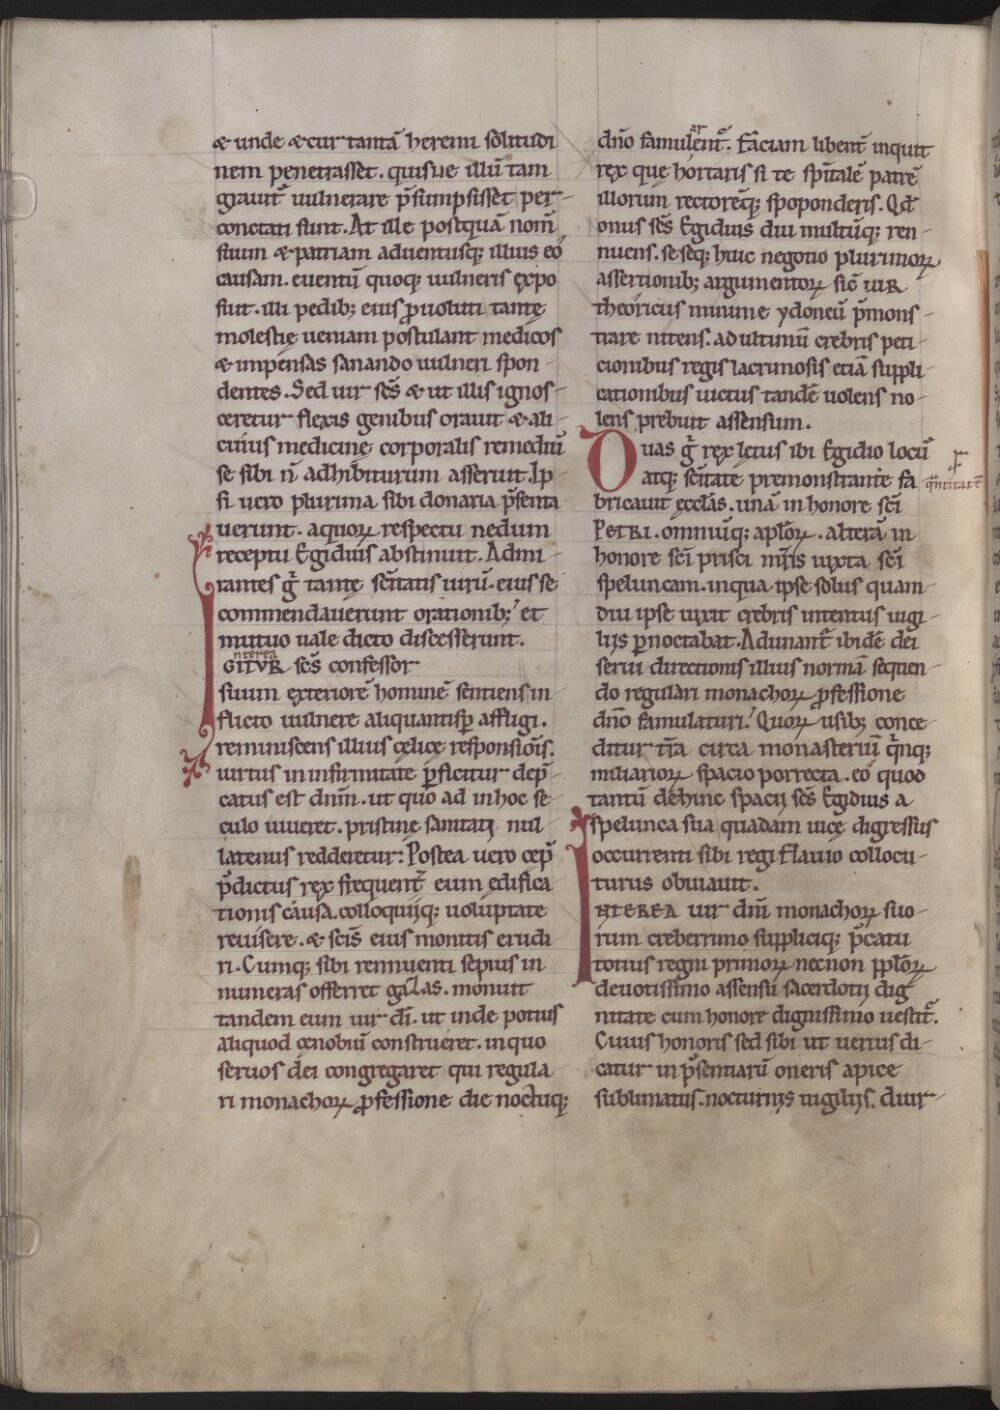 & unde & cur tantā heremi solitudi
nem penetrasset. quisue illū tam
grauit̄ uulnerare p̄sumpsisset per-
conctati sunt. At ille postquā nom̄
suum & patriam aduentusq; illius eo
causam. euentū quoq; uulneris expo
suit. illi pedib; eius ꝓuoluti tantę
molestię ueniam postulant medicos
& impensas sanando uulneri spon-
dentes. Sed uir sc̄s & ut illis ignos-
ceretur flexis genibus orauit & ali-
cuius medicinę corporalis remediū
se sibi n̄ adhibiturum asseruit. Ip
si uero plurima sibi donaria p̄senta
uerunt. a quoꝝ respectu nedum
receptu Egidius abstinuit. Admi-
rantes g̊ tantę sc̄itatis uirū. eius se
commendauerunt orationib; et
mutuo uale dicto discesserunt.
nterea
GITVR sc̄s confessor
suum exteriorē hominē sentiens in-
flicto uulnere aliquantisꝑ affligi.
reminiscens illius cęlicę responsiōis.
uirtus in infirmitate ꝑficitur dep̄-
catus est dn̄m. ut quo ad in hoc se-
culo uiueret. pristinę sanitati nul-
latenus redderetur: Postea uero cep̄
p̄dictus rex frequent̄ eum ędifica
tionis causa. colloquiiq; uoluptate
reuisere. & sc̄is eius monitis erudi
ri. Cumq; sibi rennuenti sepius in
numeras offerret gazas. monuit
tandem eum uir dī. ut inde potius
aliquod cenobiū construeret. in quo
seruos dei congregaret qui regula
ri monachoꝝ ꝓfessione die noctuq;
dn̄o famulent᷑. Faciam libent̄ inquit
ar
rex quę hortaris si te sp̄italē patrē
illorum rectoreq̄; spoponderis. Qd̄
onus sc̄s Egidius diu multūq; ren-
nuens. se seq; huic negotio plurimoꝝ
assertionib; argumentoꝝ sic̄ uir
theoricus minime ydoneū p̄mons-
trare nitens. ad ultimū crebris peti-
cionibus regis lacrimosis etiā suppli-
cationibus uictus tandē uolens no-
lens prebuit assensum.
Duas g̊ rex letus ibi Egidio locū
atq; sc̄itate premonstrante fa
q̄ntitatē
bricauit ęccl̄as. unā in honore sc̄i
PETRI. omniūq; apl̄oꝝ. alterā in
honore sc̄i prisci mr̄is iuxta sc̄i
speluncam. in qua ipse solus quam-
diu ipse uixit crebris intentus uigi-
liis ꝑnoctabat. Adunant᷑ ibidē dei
serui directionis illius normā sequen-
do regulari monachoꝝ ꝓfessione
dn̄o famulaturi. Quoꝝ usib; conce-
ditur tr̄a circa monasteriū q̄nq;
miliarioꝝ spacio porrecta. eo quod
tantū dehinc spacij sc̄s Egidius a
spelunca sua quadam uice digressus
occurrenti sibi regi Flauio collocu-
turus obuiauit.
INTEREA uir dn̄i monachoꝝ suo-
rum creberrimo suppliciq; p̄catu
totius regni primoꝝ necnon pp̄loꝝ
deuotissimo assensu sacerdotij dig
nitate cum honore dignissimo uestit᷑.
Cuius honoris sed sibi ut uerius di-
catur in p̄sentiarū oneris apice
sublimatus. nocturnis uigiliis. diur-